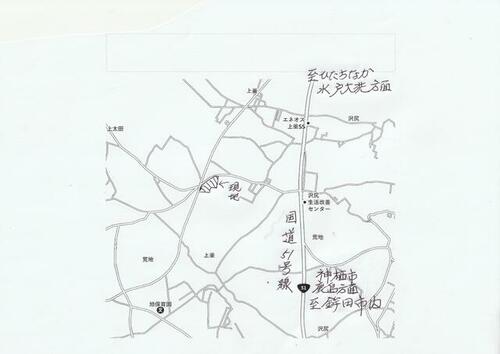 至ひたちなか
水戸大洗方面
上釜
エネオス
上釜SS
沢尻
上太田
現地
沢尻
生活改善
センター
国道51号線
荒地
荒地
上釜
神栖市
鹿島方面
至鉾田市内
51
旭保育園
文
沢尻